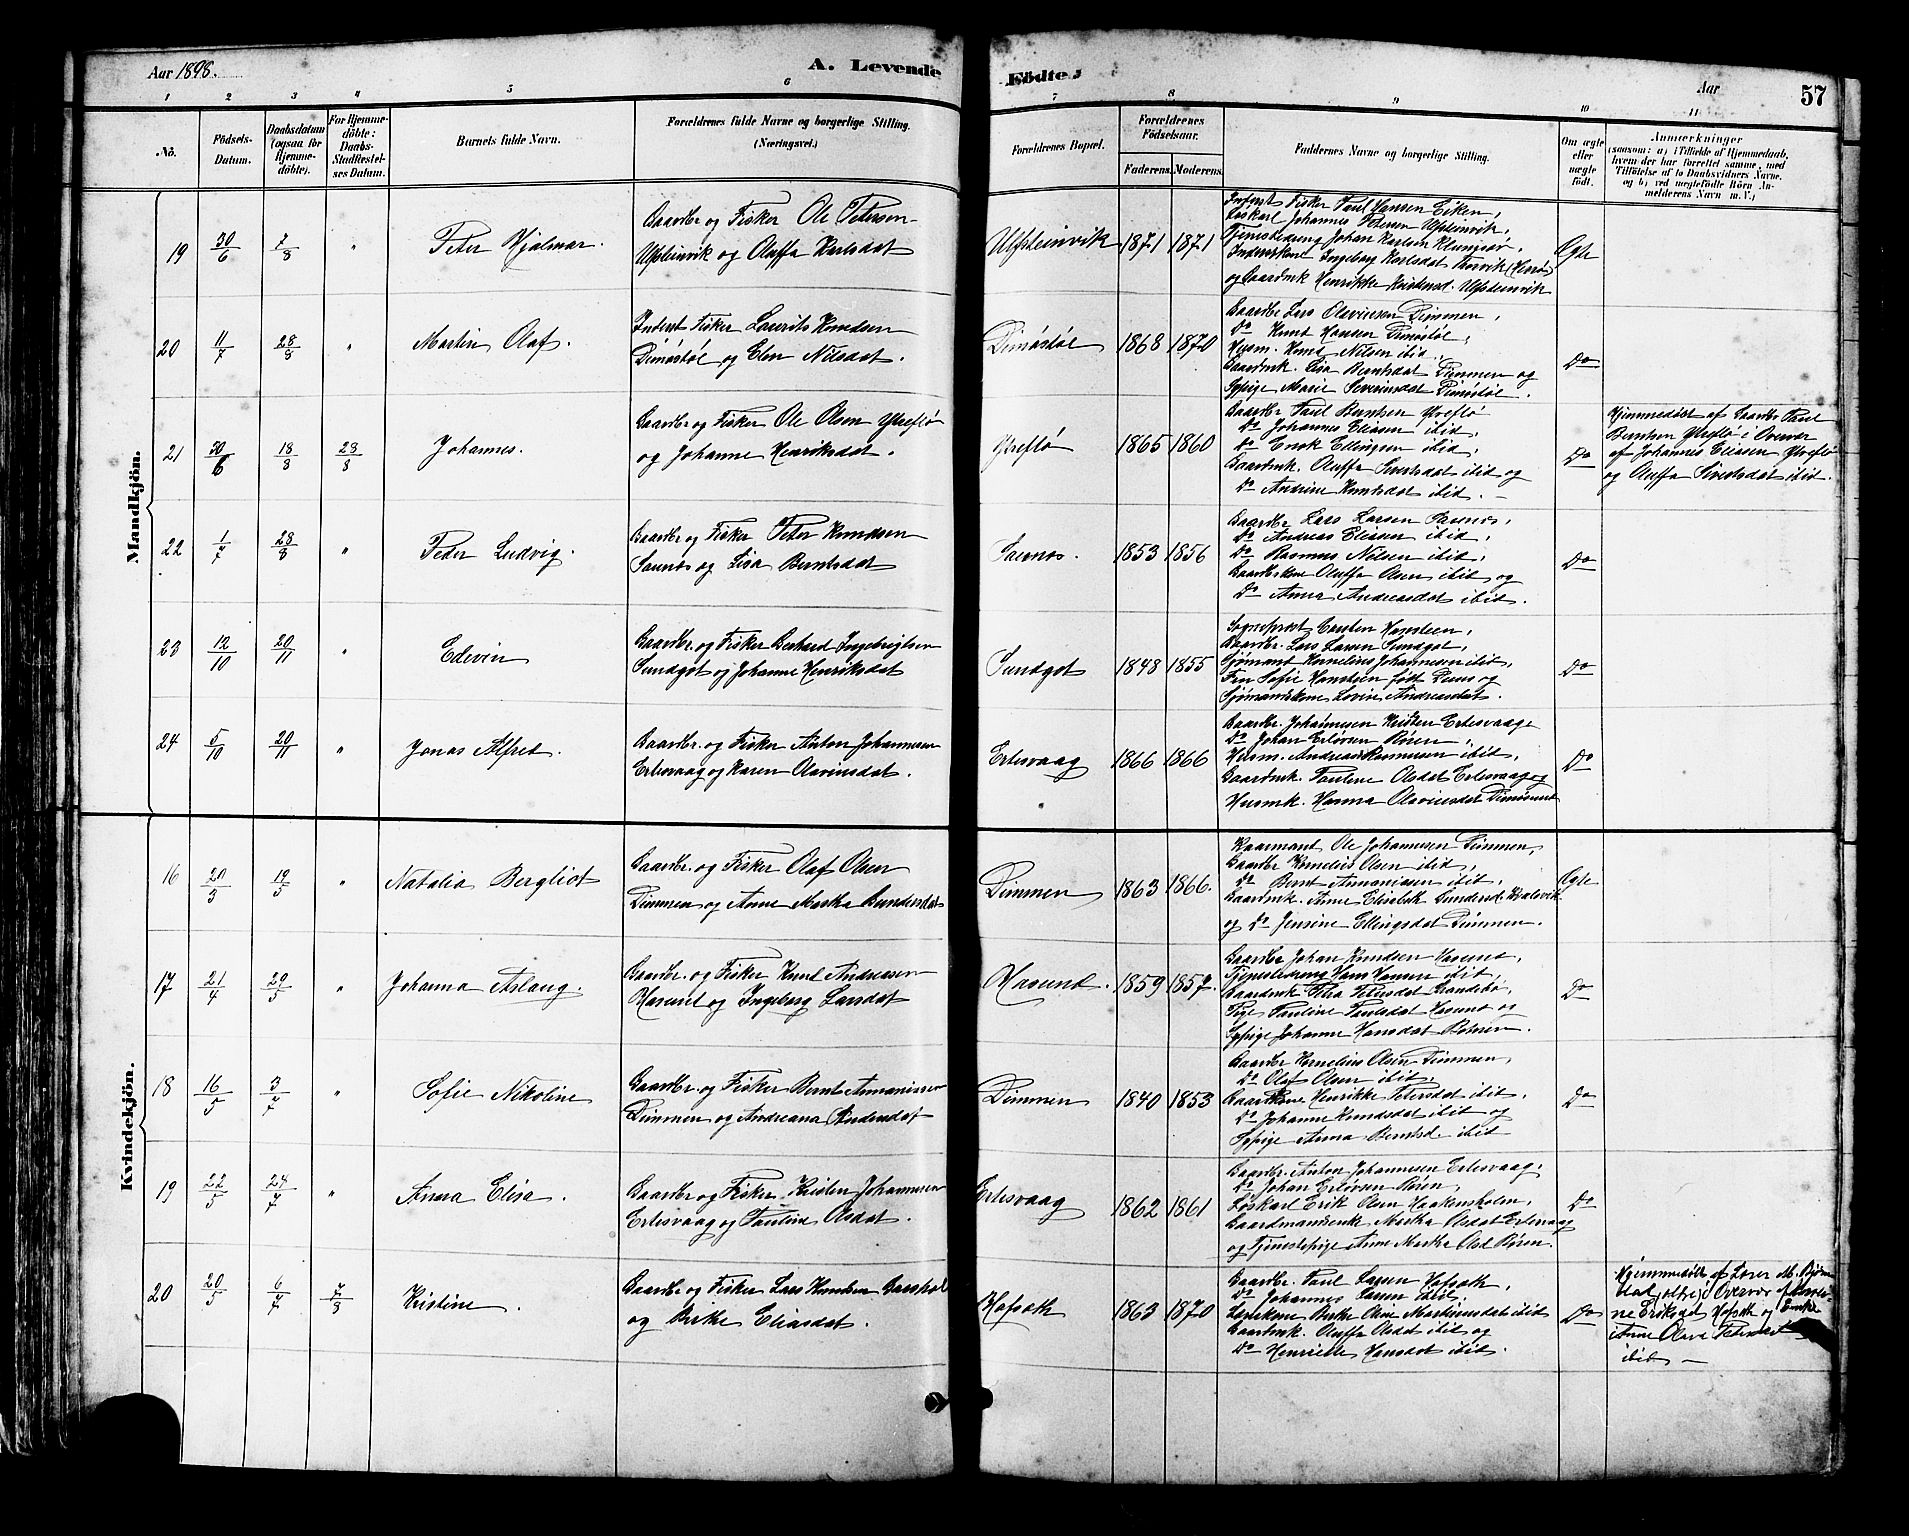 Aar 1898.
A. Levende
Födte.
Aar
57
1 2 3 4 5 6 7 8 9 10 11
No.
Födsels-
Datum.
Daabsdatum
(ogsaa for
Hjemme-
döbte).
For Hjemme-
döbte:
Daabs-
Stadfæstel-
ses Datum.
Barnets fulde Navn.
Forældrenes fulde Navne og borgerlige Stilling.
(Næringsvei.)
Forældrenes Bopæl.
Forældrenes
Födselsaar.
Faderens. Moderens.
Faddernes Navne og borgerlige Stilling.
Om ægte
eller
uægte
födt.
Anmærkninger
(saasom: a) i Tilfælde af Hjemmedaab,
hvem der har forrettet samme, med
Tilföielse af to Daabsvidners Navne,
og b) ved uægtefödte Börn An-
melderens Navn m. V.)
Mandkjön.
19 30/6 7/8 " Peter Hjalmar.
Gaardbr og Fisker Ole Petersen
Ulfsteinvik og Oluffa Karlsdat
Ulfsteinvik 1871 1871
Inderst Fisker Paul Hansen Eiken,
Løskarl Johannes Petersen Ulfsteinvik,
Tjenestedreng Johan Karlsen Klungsør,
Inderstkone Ingeborg Karlsdat Thorvik (Herø)
og Gaardmk Henrikke Kristensd. Ulfsteinvik
Ægte
20 11/7 28/8 " Martin Olaf.
Inderst Fisker Laurits Knudsen
Dimøstøl og Elen Nilsdat.
Dimøstøl 1868 1870
Gaardbr Lars Olavinsen Dimmen,
Do Knut Hansen Dimøstøl,
Husm. Knud Nilsen ibid,
Gaardmk. Lisa Berntsdat Dimmen og
Sypige Marie Severinsdat Dimøstøl.
Do
21 30/6 18/8 28/8 Johannes.
Gaardbr og Fisker Ole Olsen Yttreflø
og Johanne Henriksdat.
Yttreflø 1865 1860
Gaardbr Paul Berntsen Yttreflø
Do Johannes Eliasen ibid,
Do Enok Ellingsen ibid,
Gaardmk. Oluffa Sivertsdat ibid og
Do Andrine Knutsdat ibid. —
Do
Hjemmedøbt af Gaardbr Paul
Berntsen Yttreflø i Overvær
af Johannes Eliasen Yttreflø
og Oluffa Sivertsdat ibid.
22 1/7 28/8 " Peder Ludvig.
Gaardbr og Fisker Peter Knudsen
Saunes og Lisa Berntsdat
Saunes. 1853 1856
Gaardbr Lars Larsen Saunes,
Do Andreas Eliasen ibid,
Do Rasmus Nilsen ibid,
Gaardbrkone Oluffa Olsen ibid og
Do Anna Andreasdat ibid.
Do
23 12/10 20/11 " Edevin
Gaardbr. og Fisker Berhard Ingebrigtsen
Sundgot og Johanne Henriksdat
Sundgot 1848 1855
Sogneprest Carsten Hansteen,
Gaardbr. Lars Larsen Sundgot,
Sjømand Kornelius Johannesen ibid,
Fru Sofie Hansteen født Deinss og
Sjømandskone Lovise Andreasdat.
Do
24 5/10 20/11 " Jonas Alfred.
Gaardbr. og Fisker Anton Johannesen
Ertesvaag og Karen Olavinsdat.
Ertesvaag 1866 1866
Gaardbr. Johannesen Kristen Ertesvaag
Do Johan Erlovsen Røren,
Husm. Andreas Rasmussen ibid,
Gaardmk. Pauline Olsdat Ertesvaag og
Husmk. Hanna Olavinsdat Dimøsund
Do
Kvindekjön.
16 20/3 19/5 " Natalia Bergliot
Gaardbr. og Fisker Olaf Olsen
Dimmen og Anne Martha Gundersdat
Dimmen 1863 1866.
Kaarmand Ole Johannesen Dimmen,
Gaardbr Kornelius Olsen ibid,
Do Bernt Annaniassen ibid,
Gaardmk. Anne Elisabeth Gundersd. Hvalsvik
og Do Jensine Ellingsdat Dimmen.
Ægte
17 21/4 29/5 " Johanna Aslaug.
Gaardbr. og Fisker Knut Andreassen
Hasund og Ingeborg Larsdat
Hasund. 1859 1857.
Gaardbr Johan Knudsen Hasund,
Tjenestedreng Hans Hansen ibid,
Gaardmk Petra Petersdat Strandabø,
Pige Pauline Paulsdat Hasund og
Sypige Johanne Hansdat Botnen.
Do
18 16/5 3/7 " Sofie Nikoline
Gaardbr. og Fisker Bernt Annaniassen
Dimmen og Andreana Andersdat
Dimmen 1840 1853
Gaardbr Kornelius Olsen Dimmen,
Do Olaf Olsen ibid,
Gaardkone Henrikke Petersdat ibid,
Do Johanne Knudsdat ibid og
Sypige Anna Berntsd. ibid
Do
19 22/5 24/7 " Anna Elisa.
Gaardbr og Fisker Kristen Johannesen
Ertesvaag og Pauline Olsdat.
Ertesvaag 1862 1861
Gaardbr. Anton Johannesen Ertesvaag,
Do Johan Erlovsen Røren,
Løskarl Erik Olsen Haakensholm,
Gaardmandsenk Martha Olsdat Ertesvaag
og Tjenestepige Anne Martha Olsd Røren.
Do
20 20/5 6/7 7/8 Kristine.
Gaardbr og Fisker Lars Knudsen
og Birthe Eliasdat.
Hofsæth 1863 1870
Gaardbr. Paul Larsen Hofsæth,
Do Johannes Larsen ibid,
Birthe Oline Martinusdat ibid
Gaardmk. Oluffa Olsdat ibid og
Do Henriette Hansdat ibid.
Do
Hjemmedøbt af Lærer M. Bjørn-
i Overvær af
Eriksdat Hofsæth og Enke
Anne Olava Petersdat
ibid —